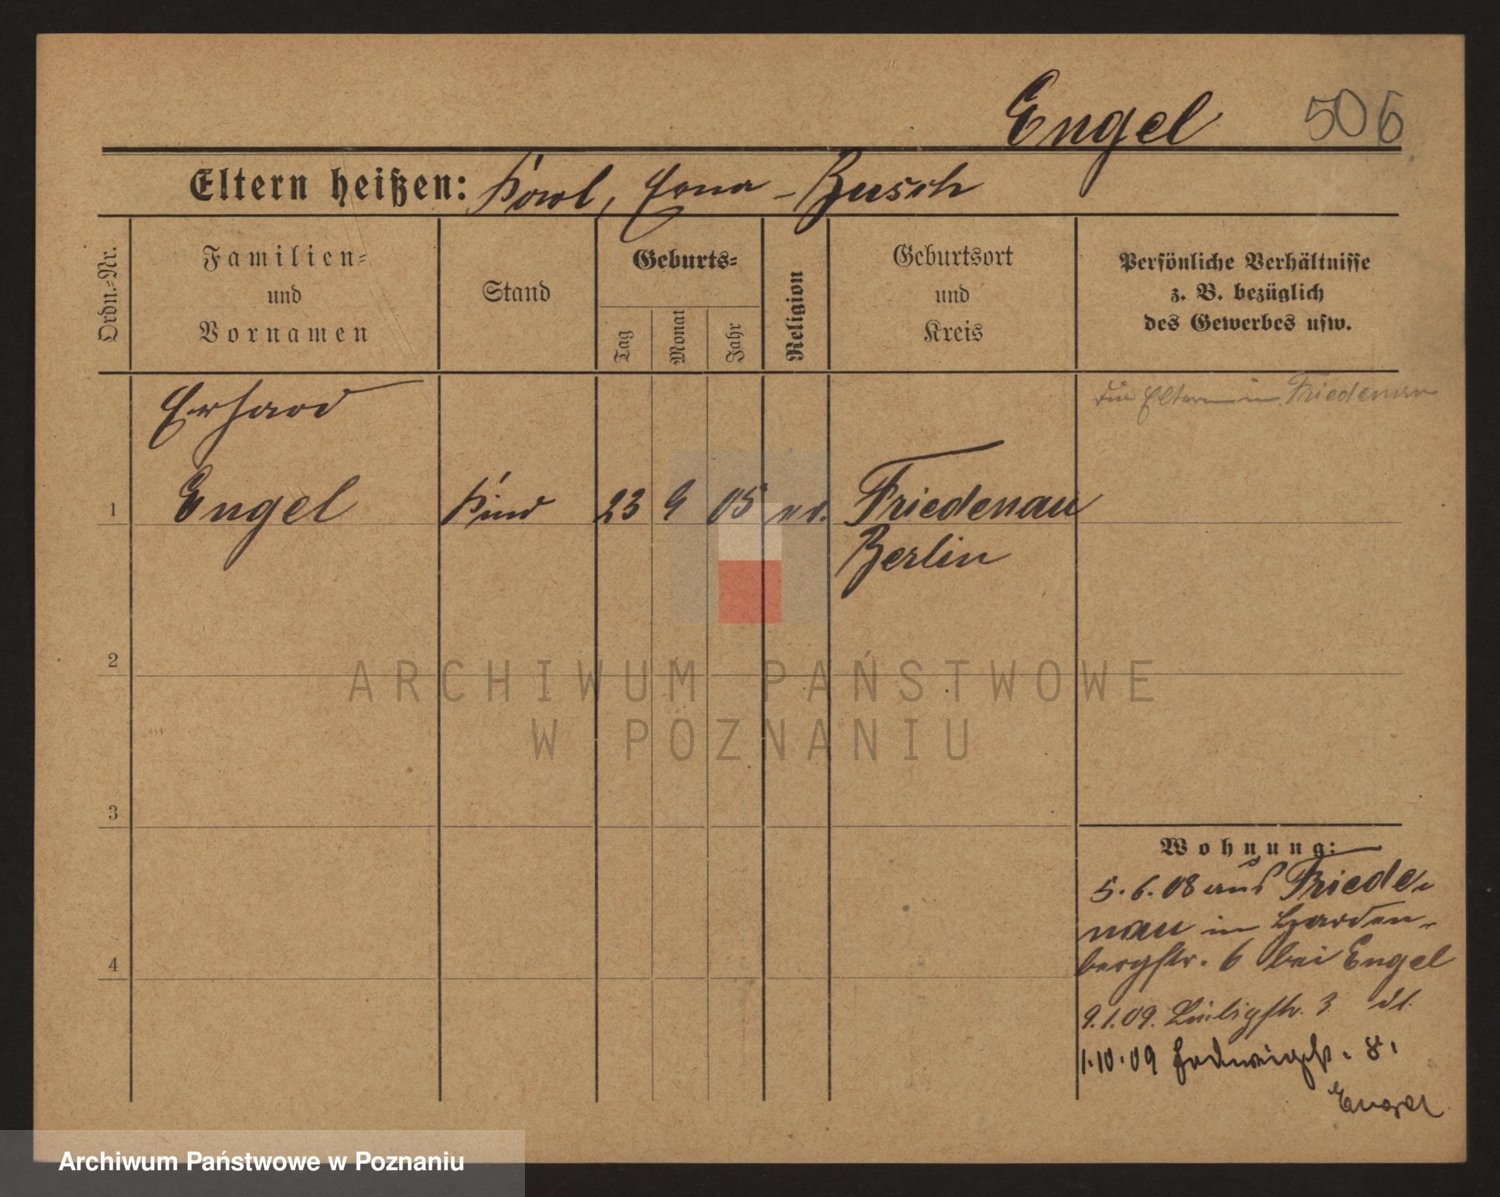 Engel 506
Eltern heißen: Karl, Erna - Busch
Ordn.-Nr.
Familien-
und
Vornamen
Stand
Geburts-
Tag
Monat
Jahr
Religion
Geburtsort
und
Kreis
Persönliche Verhältnisse
z. B. bezüglich
des Gewerbes usw.
Die Eltern in Friedenau
Erhard
1 Engel Kind 23 9 05 Friedenau
Berlin
2
ARCHIWUM PAŃSTWOWE
W POZNANIU
3
Wohnung:
5.6.08 aus Friede-
nau in Harden-
bergstr. 6 bei Engel
9.1.09. Liebigstr. 3 dt.
4
1.10.09 Hedwigstr. 8.
Engel
Archiwum Państwowe w Poznaniu